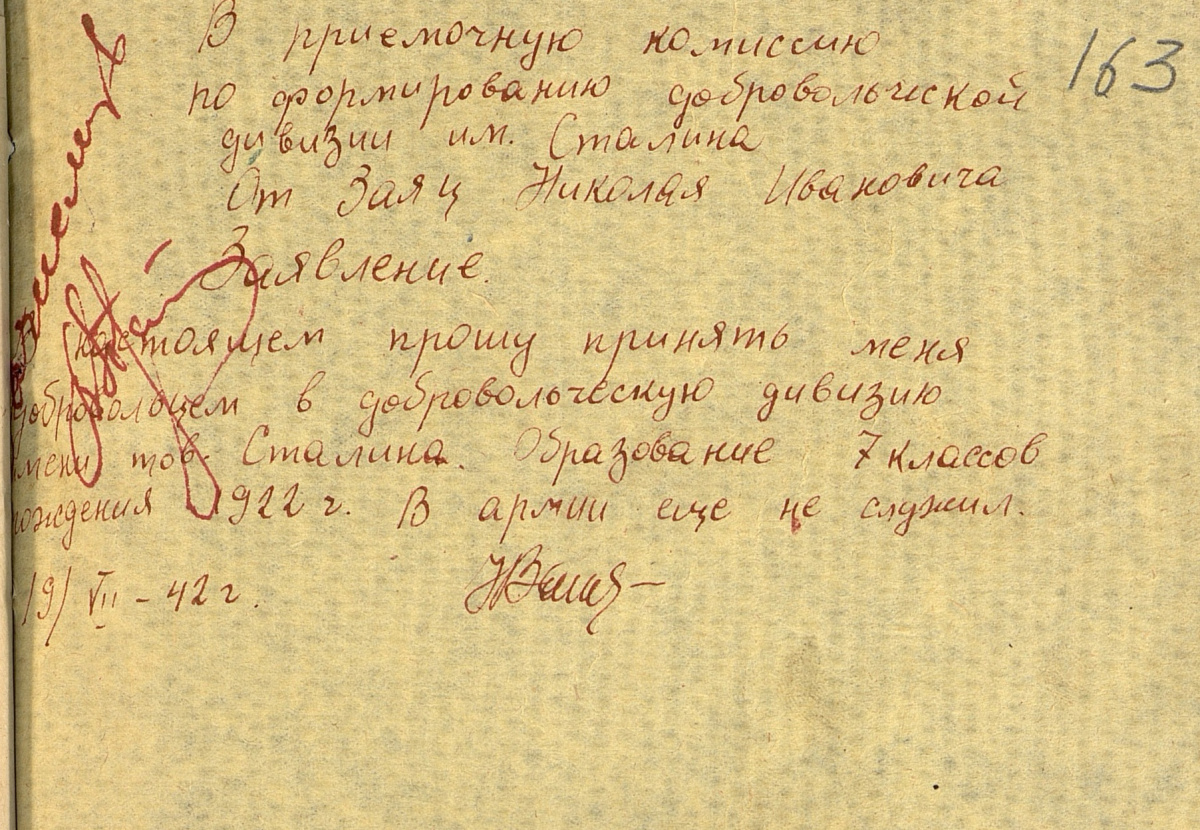 163
В приемочную комиссию
по формированию добровольческой
дивизии им. Сталина
От Заяц Николая Ивановича
Заявление.
В настоящем прошу принять меня
добровольцем в добровольческую дивизию
имени тов. Сталина. Образование 7 классов
рождения 1922 г. В армии еще не служил.
19/VII - 42 г.